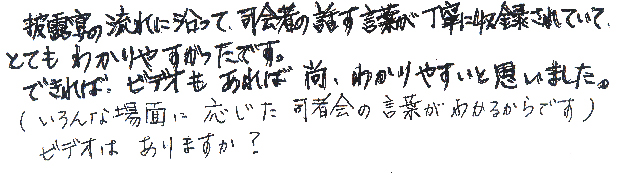 披露宴の流れに沿って、司会者の話す言葉が丁寧に収録されていて、
とてもわかりやすかったです。
できれば、ビデオもあれば尚、わかりやすいと思いました。
(いろんな場面に応じた司者会の言葉がわかるからです)
ビデオはありますか?